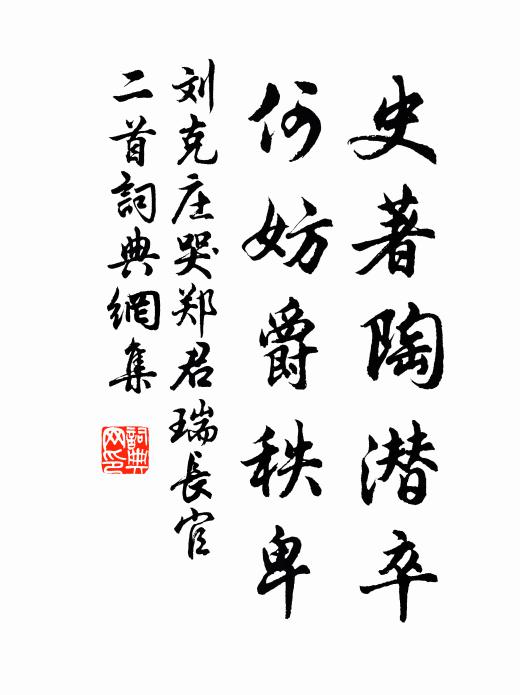 史著陶潜卒
何妨爵秩卑
刘克庄哭郑君瑞長官
二首詞典網集
詞典
网印